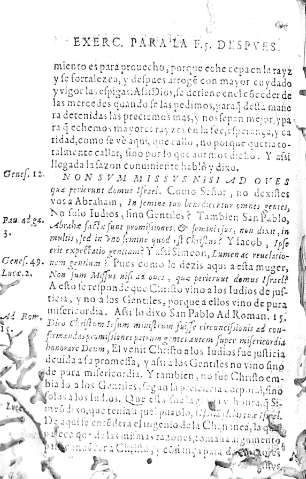 EXERC. PARA LA F.5. DESPVES.
miento es para prouecho, porque eche cepa en la rayz
y se fortalezca, y despues arroge con mayor cuydado
y vigor las espigas. Assi Dios, se detiene en el cõceder de
las mercedes quando se las pedimos, para q̃ desta mane
ra detenidas las preciemos mas, y nos sepan mejor, y pa
ra q̃ echemos mayores rayzes en la fee, esperança, y ca
ridad, como se vè aqui, que callò, no porque queria to-
talmente callar, sino por lo que auemos dicho. Y assi
llegada la sazon conuiniente hablò y dixo.
Genes. 12.
NON SVM MISSVS NISI AD OVES
quæ perierunt domus Israel. Como Señor, no dexistes
vos a Abraham, In semine tuo benedicentur omnes gentes,
No solo Iudios, sino Gentiles? Tambien San Pablo,
Pau. ad ga.
3.
Abrahæ factæ sunt promissiones, & semini eius, non dixit, in
multis, sed in vno semine quod est Christus? Y Iacob, Ipse
erit expectatio gentium? Y assi Simeon, Lumen ad reuelatio-
Genes. 49.
Luc. 2.
nem gentium? Pues como le dezis aqui a esta muger,
Non sum Missus nisi ad oues, quæ perierunt domus Israel?
A esto se responde que Christo vino a los Iudios de jus-
ticia, y no a los Gentiles, porque a ellos vino de pura
misericordia. Assi lo dixo San Pablo Ad Roman. 15.
Ad Rom.
15.
Dico Christum Iesum ministrum fuisse circuncisionis ad con-
firmandas promissiones patrum gentes autem super misericordia
honorare Deum, El venir Christo a los Iudios fue justicia
deuida a la promessa, y assi a los Gentiles no vino sino
de pura misericordia. Y tambien, no fue Christo em-
biado a los Gentiles, segun la presencia corporal, sino
solas a los Iudios. Que esta fue la
Luc.
De aqui se entendera el ingenio de la Chananea, la qual
de las mismas razones, toma argumento
para